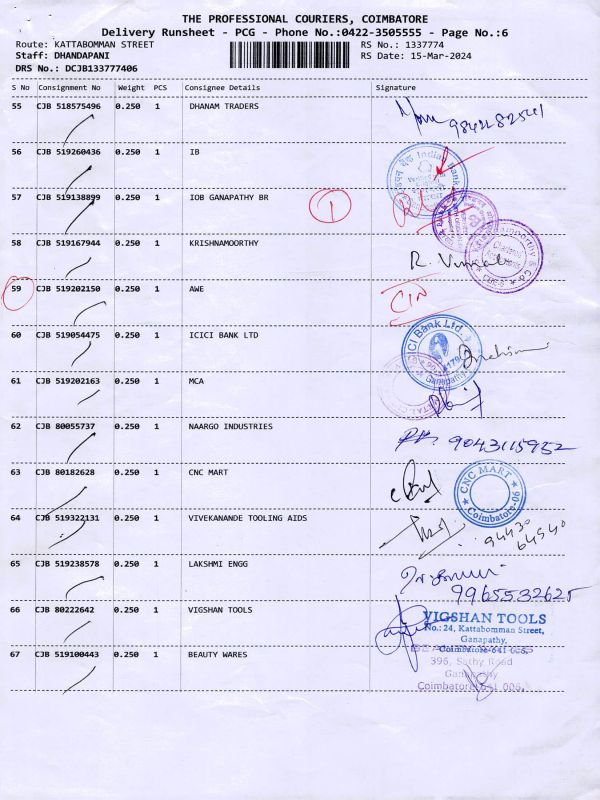 THE PROFESSIONAL COURIERS, COIMBATORE
Delivery Runsheet - PCG - Phone No.:0422-3505555 - Page No.:6
Route: KATTABOMMAN STREET RS No.: 1337774
Staff: DHANDAPANI RS Date: 15-Mar-2024
DRS No.: DCJB133777406
S No Consignment No Weight PCS Consignee Details Signature
55 CJB 518575496 0.250 1 DHANAM TRADERS
56 CJB 519260436 0.250 1 IB
Indian Bank
57 CJB 519138899 0.250 1 IOB GANAPATHY BR 1
58 CJB 519167944 0.250 1 KRISHNAMOORTHY
59 CJB 519202150 0.250 1 AWE
60 CJB 519054475 0.250 1 ICICI BANK LTD
ICICI Bank Ltd.
Ganapathy
61 CJB 519202163 0.250 1 MCA
62 CJB 80055737 0.250 1 NAARGO INDUSTRIES
9043115952
63 CJB 80182628 0.250 1 CNC MART
CNC MART
Coimbatore-06
64 CJB 519322131 0.250 1 VIVEKANANDE TOOLING AIDS
94430
64940
65 CJB 519238578 0.250 1 LAKSHMI ENGG
9965532625
66 CJB 80222642 0.250 1 VIGSHAN TOOLS
VIGSHAN TOOLS
No.: 24, Kattabomman Street,
Ganapathy,
Coimbatore-641 006.
67 CJB 519100443 0.250 1 BEAUTY WARES
396, Sathy Road
Ganapathy
Coimbatore-641 005.